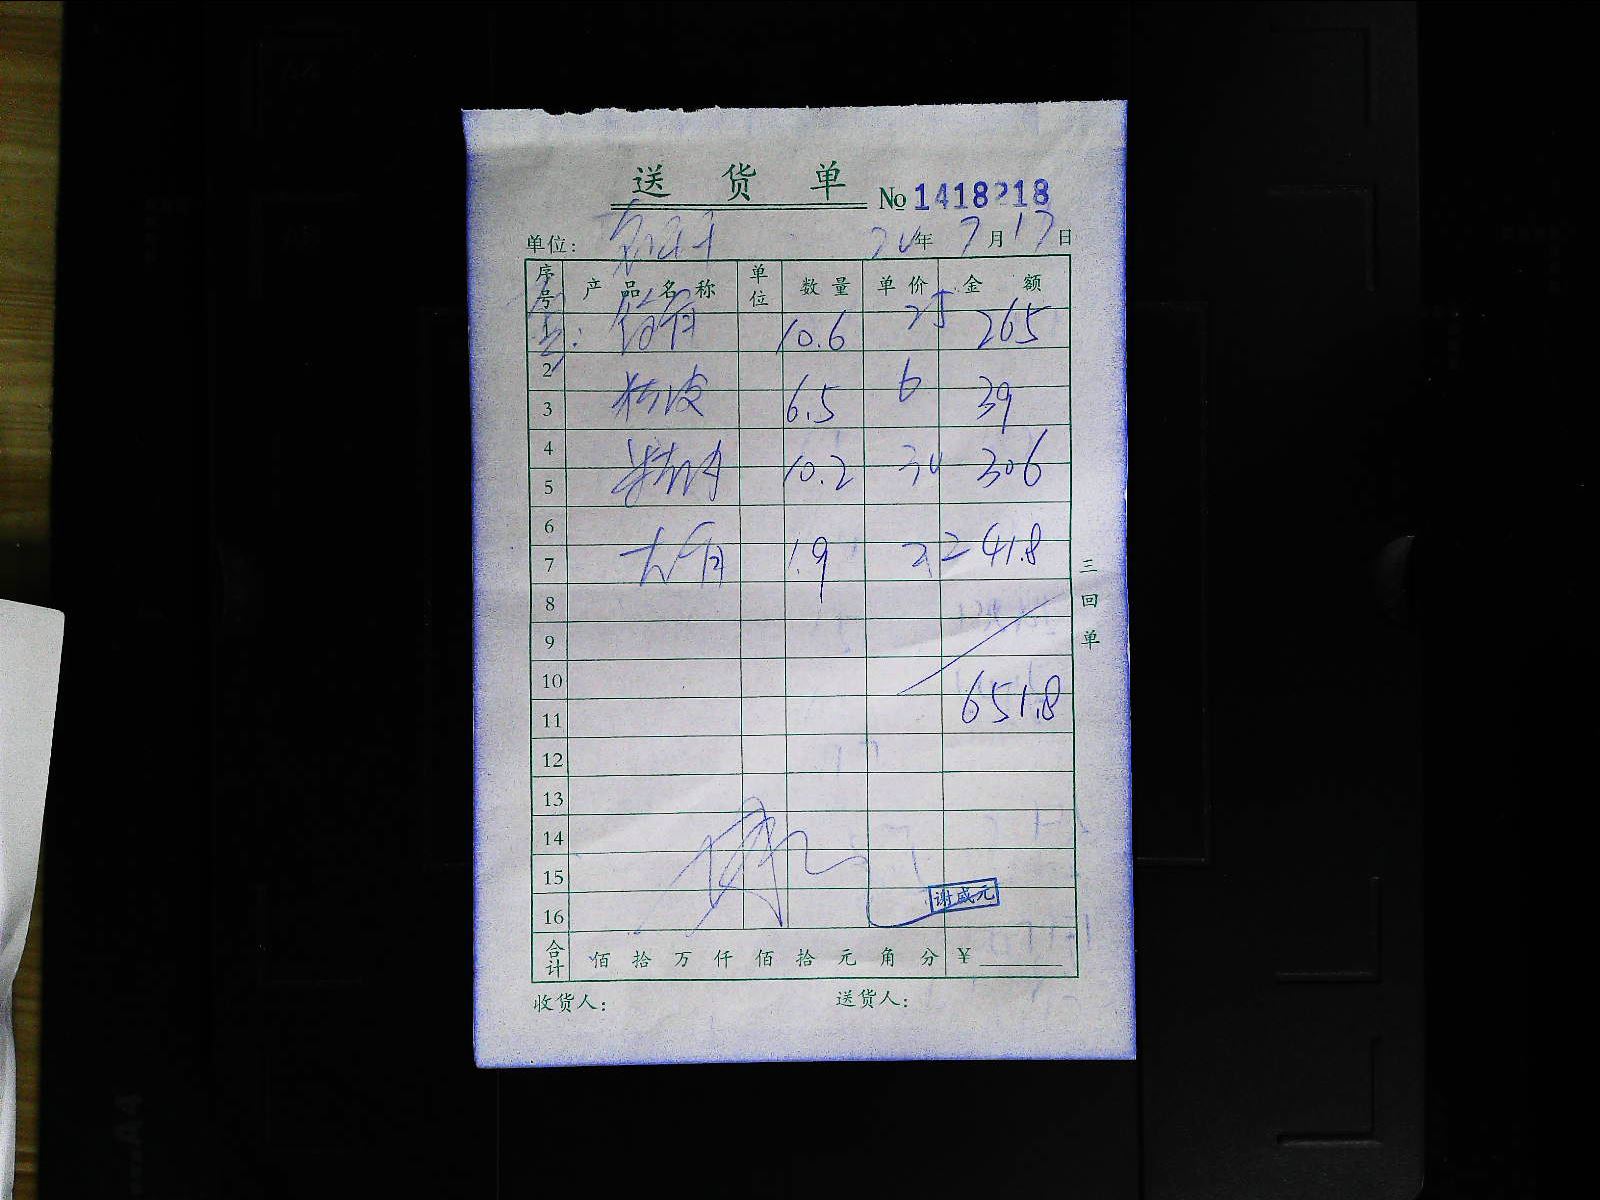 送货单 No 1418218
单位： 年 7月17日
序号 产品名称 单位 数量 单价 金额
1 10.6 25 265
2
3 6.5 6 39
4
5 10.2 30 306
6
7 大 1.9 22 41.8
8
9
10
11 651.8
12
13
14
15
16
谢成元
合计 佰拾万仟佰拾元角分 ¥
收货人： 送货人：
三回单